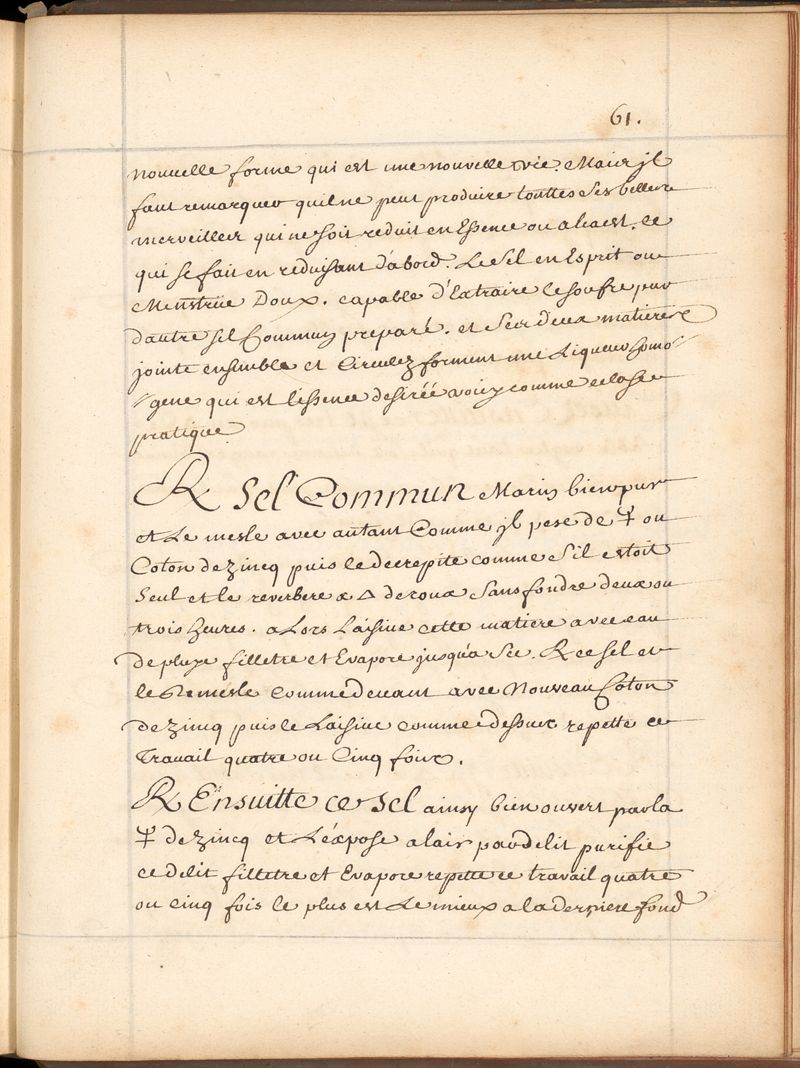 61.
nouuelle forme qui est une nouvelle vie. Mais jl
faut remarquer quil ne peut produire touttes ses belles
merveilles qui ne soit reduit en Essence ou alcaest. ce
qui se fait en reduisant d'abord. Le Sel en Esprit ou
Menstrüe Doux. capable d'Extraire le soufre pur
dautre sel Commun preparé. et Ses deux matieres
jointe ensemble et Circulez forment une Liqueur homo
gene qui est l'essence desiréé voicy comme cela se
pratique
R Sel Commun Marin bien pur
et Le mesle avec autant Comme jl pese de ☿ ou
Coton de zincq puis le decrepite comme s'il estoit
Seul et le reverbere a △ de roux Sans fondre deux ou
trois heures. alors Laisiue cette matiere avec eau
de pluye filletre et Evapore jusqua Sec. R ce sel et
le Remesle Comme devant avec Nouveau Coton
de zincq puis le Laisiue comme dessus repette ce
Travail quatre ou Cinq fois.
R Ensuitte ce sel ainsy bien ouvert par la
☿ de zincq et L'éxpose a lair pour delit purifie
ce delit filletre et Evapore repette ce travail quatre
ou cinq fois le plus est Le mieux a la derniere fond